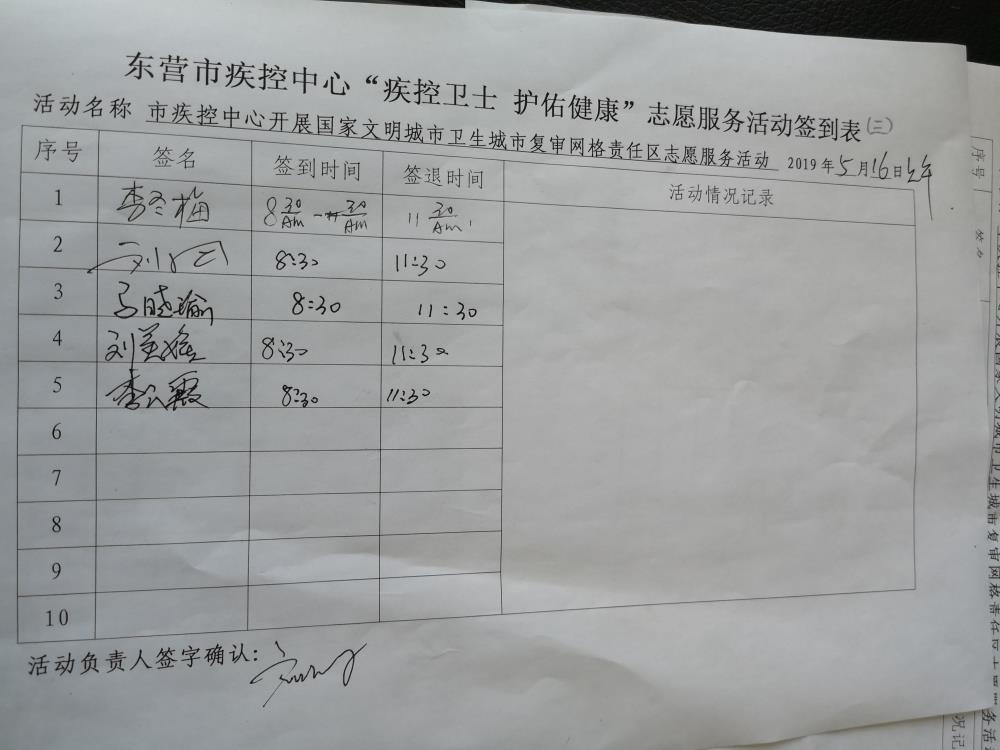 东营市疾控中心“疾控卫士 护佑健康”志愿服务活动签到表(三)
活动名称 市疾控中心开展国家文明城市卫生城市复审网格责任区志愿服务活动 2019年5月16日上午
序号 签名 签到时间 签退时间 活动情况记录
1 李冬梅 8 30 AM - 30 AM 11 30 AM
2 8:30 11:30
3 马晓瑜 8:30 11:30
4 刘美 8:30 11:30
5 李 霞 8:30 11:30
6
7
8
9
10
活动负责人签字确认:
序号
签名
卫生城市复审网格责任
务活
况记